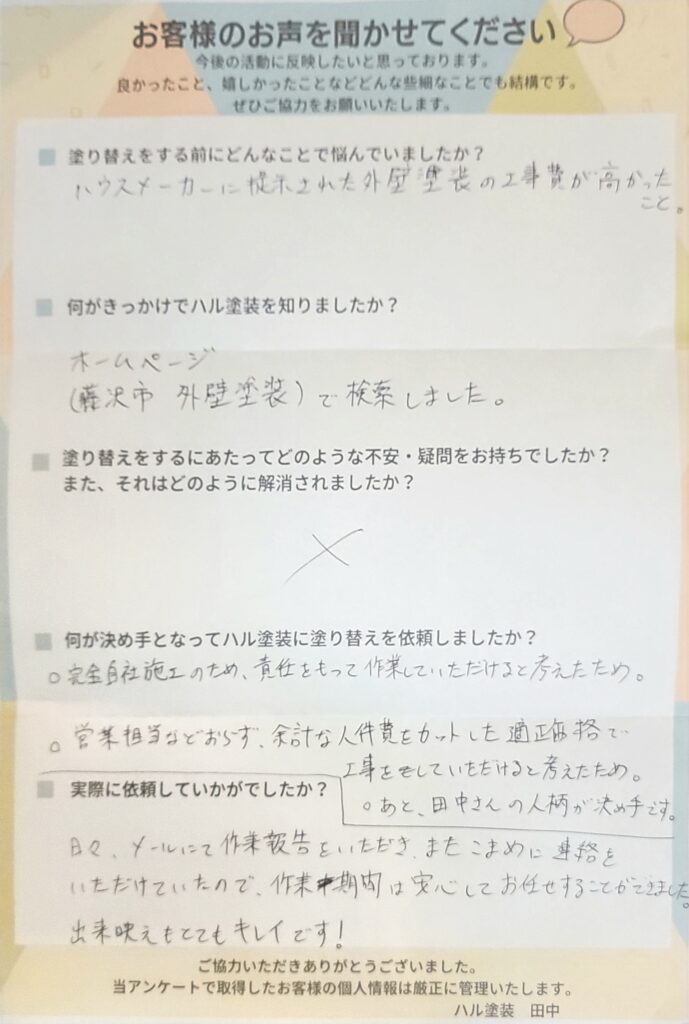 お客様のお声を聞かせてください
今後の活動に反映したいと思っております。
良かったこと、嬉しかったことなどどんな些細なことでも結構です。
ぜひご協力をお願いいたします。
塗り替えをする前にどんなことで悩んでいましたか？
ハウスメーカーに提示された外壁塗装の工事費が高かった
こと。
何がきっかけでハル塗装を知りましたか？
ホームページ
(藤沢市 外壁塗装)で検索しました。
塗り替えをするにあたってどのような不安・疑問をお持ちでしたか？
また、それはどのように解消されましたか？
×
何が決め手となってハル塗装に塗り替えを依頼しましたか？
○完全自社施工のため、責任をもって作業していただけると考えたため。
○営業担当などおらず、余計な人件費をカットした適正価格で
工事をしていただけると考えたため。
○あと、田中さんの人柄が決め手です。
実際に依頼していかがでしたか？
日々、メールにて作業報告をいただき、またこまめに連絡を
いただけていたので、作業期間は安心してお任せすることができました。
出来映えもとてもキレイです！
ご協力いただきありがとうございました。
当アンケートで取得したお客様の個人情報は厳正に管理いたします。
ハル塗装 田中